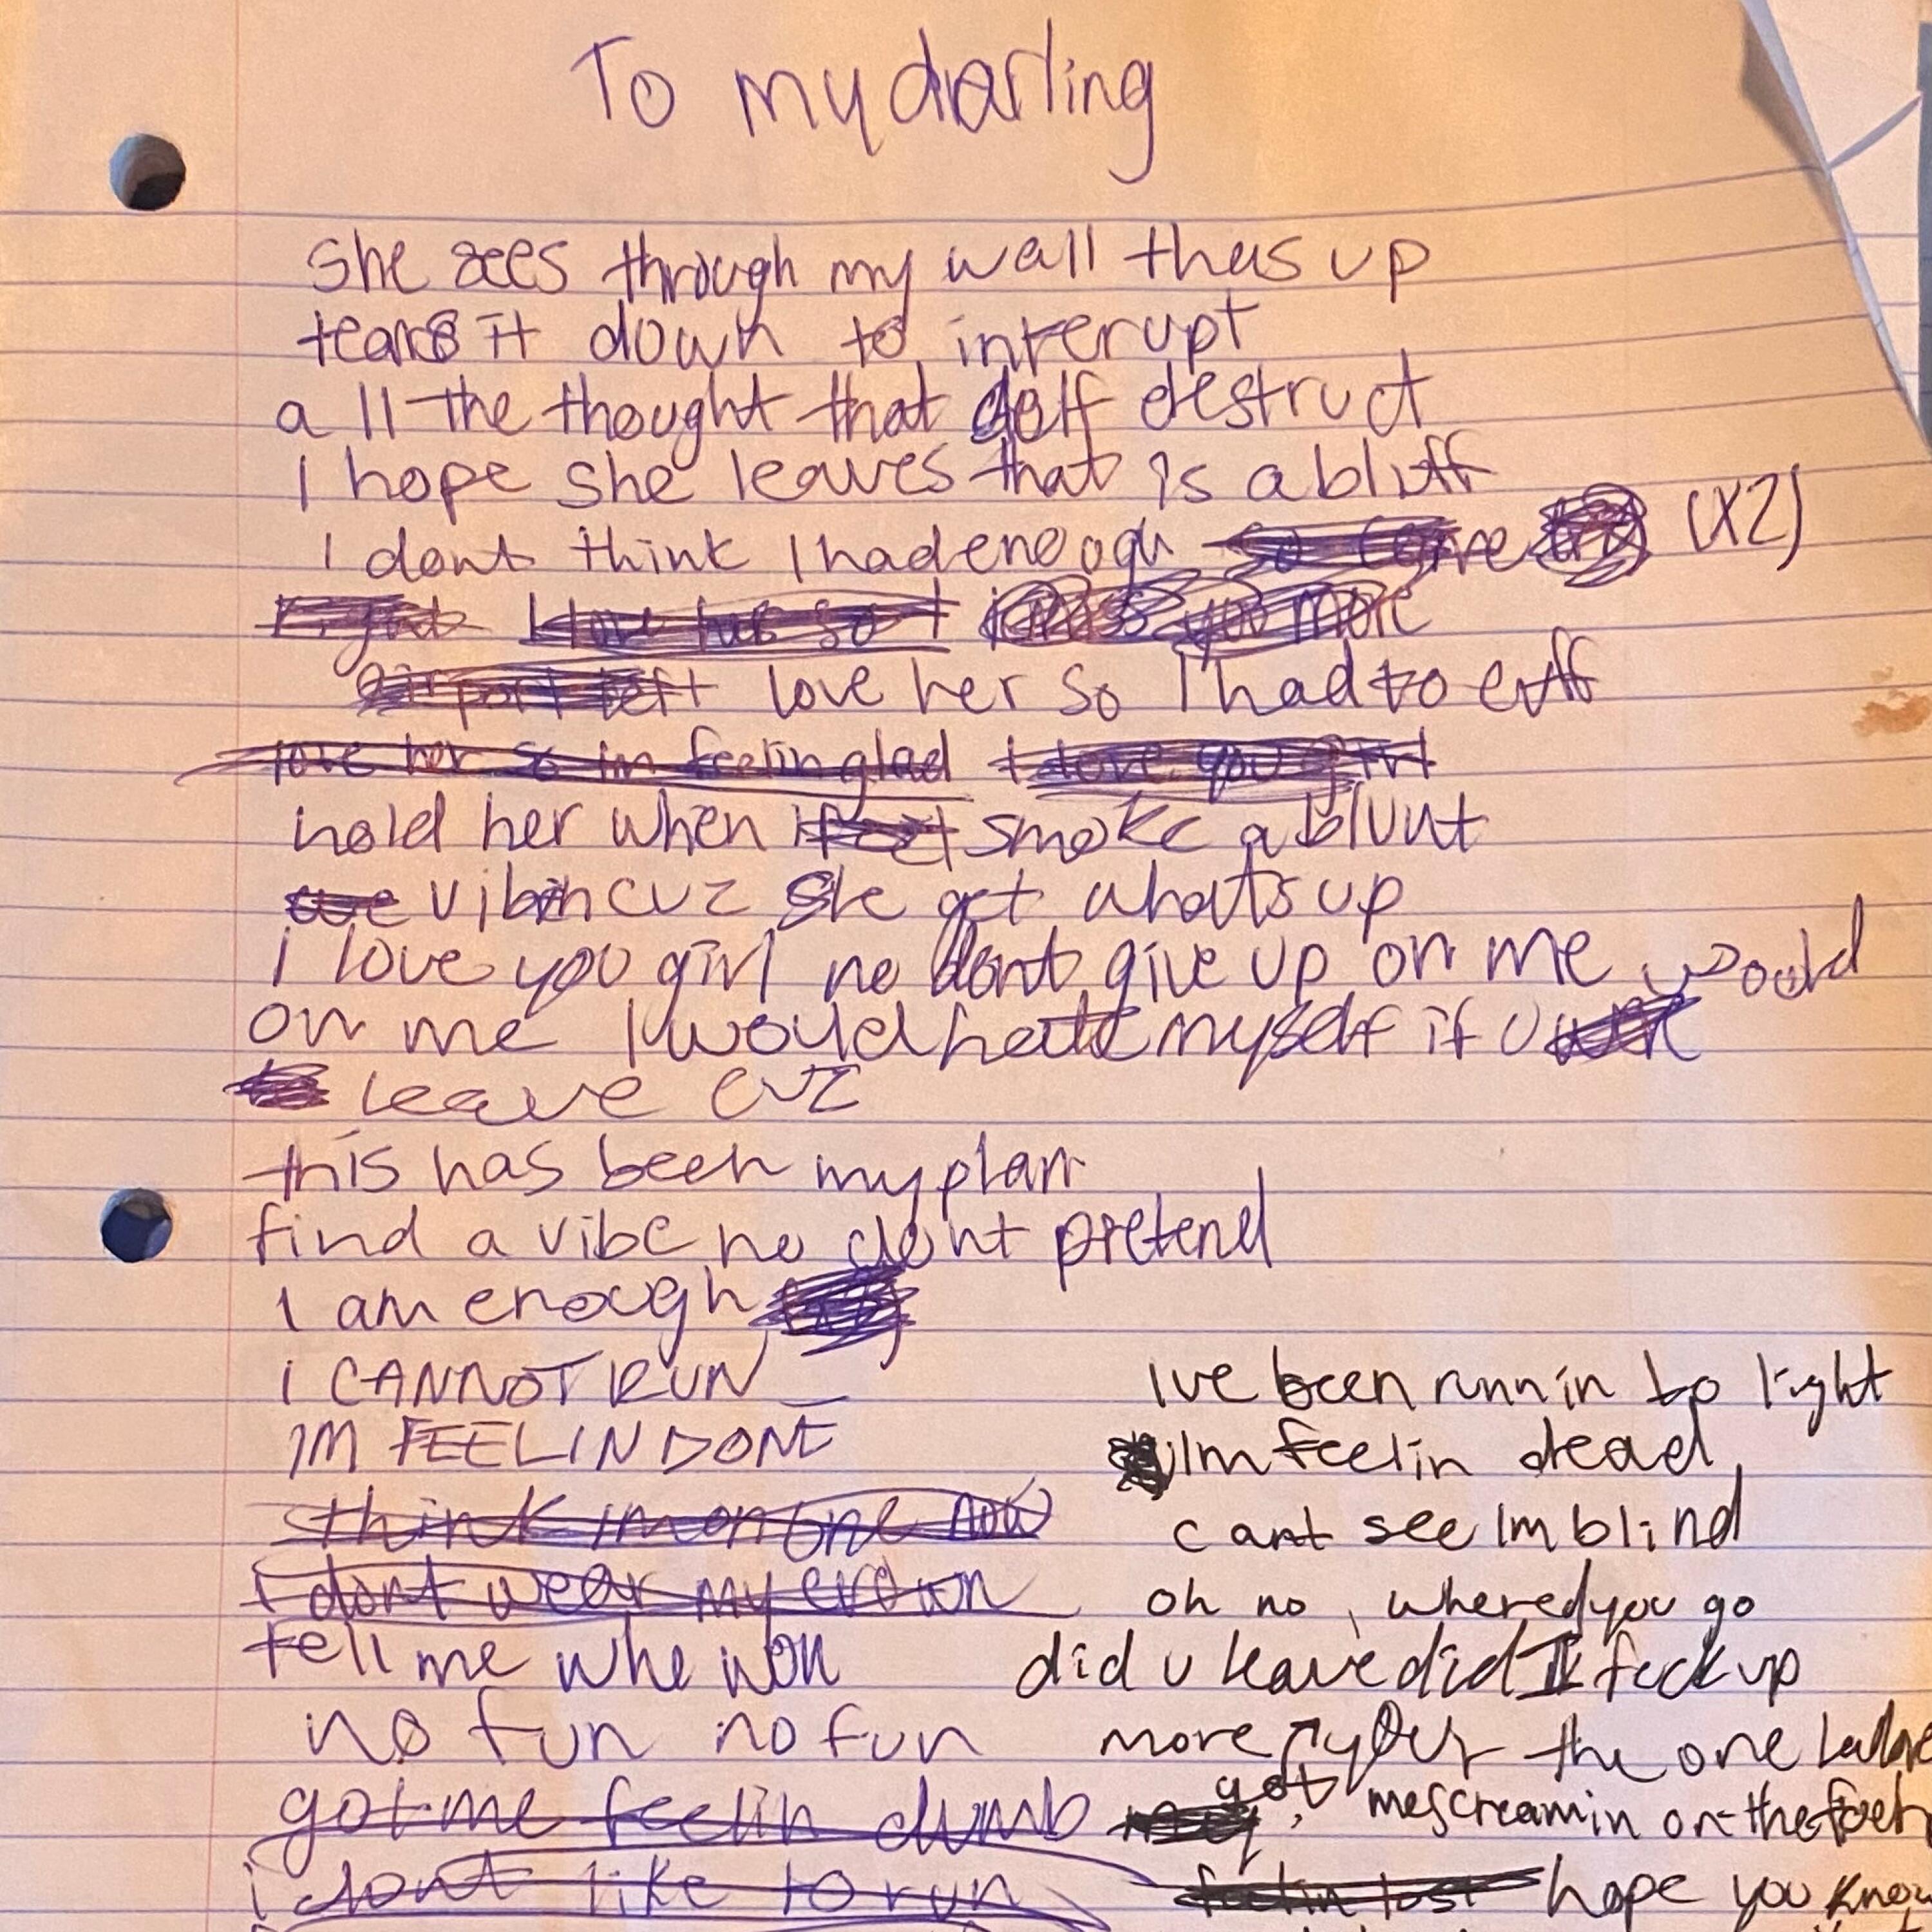 To my darling
She sees through my wall thas up
tears it down to interupt
all the thought that self destruct
I hope she leaves that is a bluff
I dont think I had enough (X2)
love her so I had to cuff
love her so im feelin glad I love you girl
hold her when i smoke a blunt
vibin cuz She get whats up
i love you girl no dont give up on me would
on me I would hate myself if U
leave cuz
this has been my plan
find a vibe no dont pretend
I am enough
i CANNOT RUN
IM FEELIN DONE
think im on one now
i dont wear my crown
tell me who won
no fun no fun
got me feelin dumb
i dont like to run
Ive been runnin to light
Im feelin dead
cant see Im blind
oh no, whered you go
did u leave did I fuck up
more the one
got me screamin on the
feelin lost hope you know